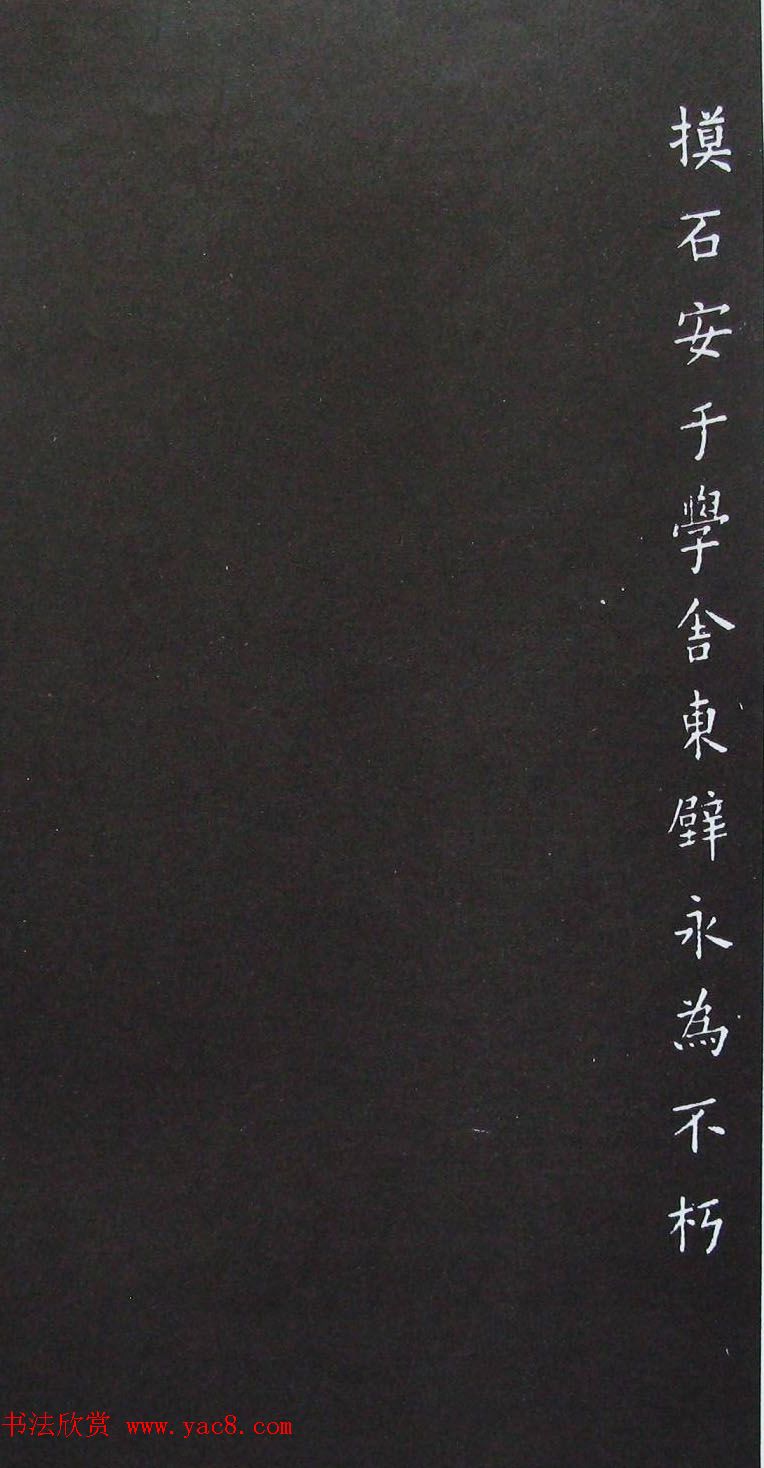 摸石安于學舍東壁永為不朽
书法欣赏 www.yac8.com